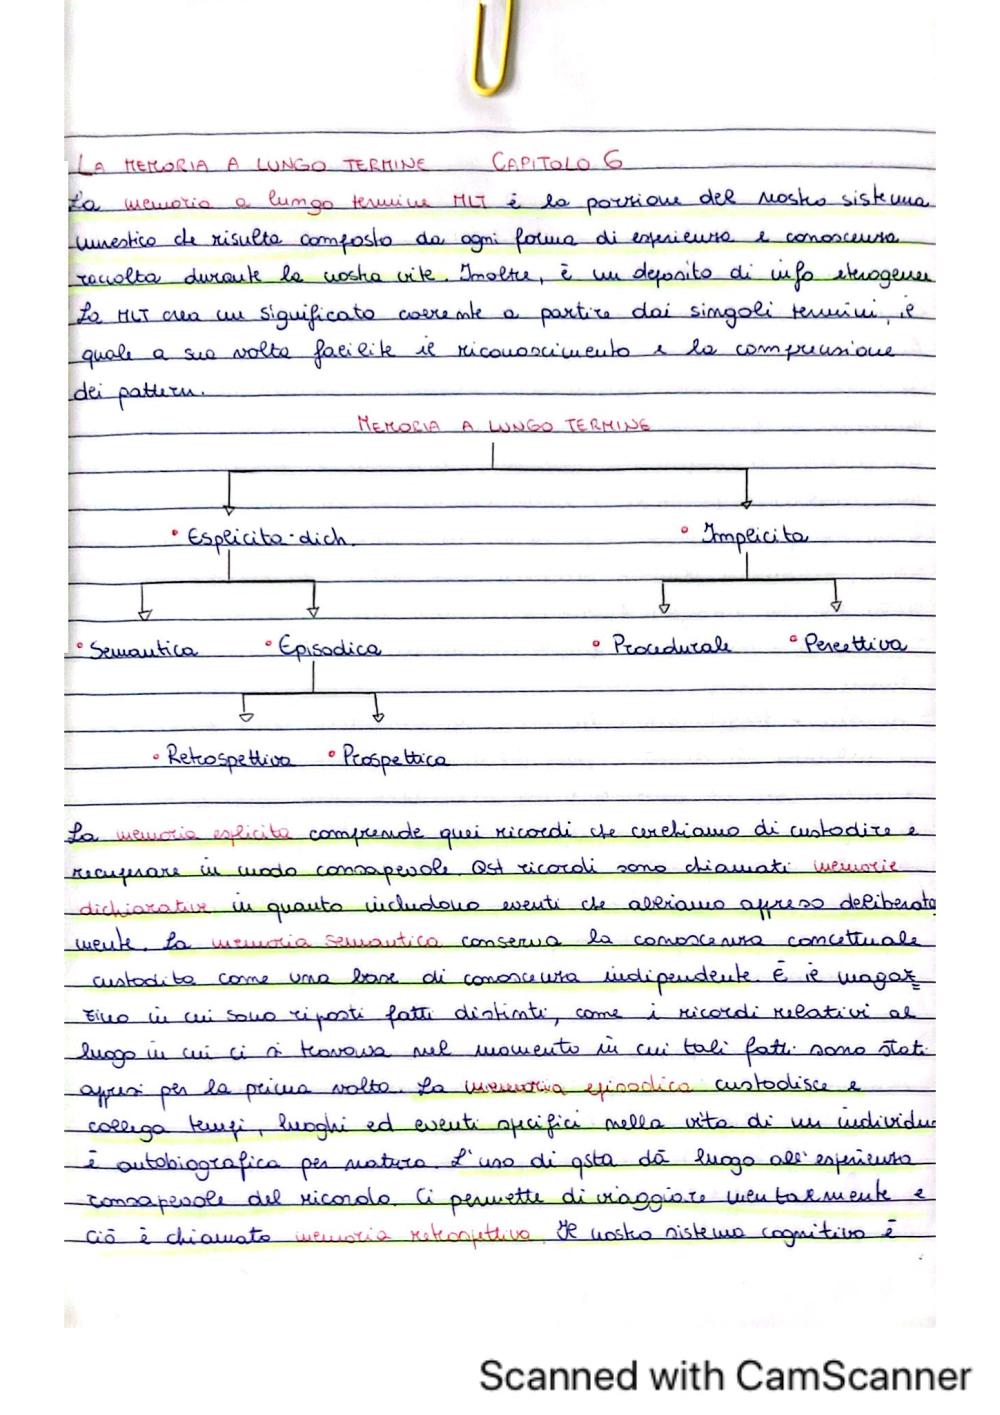 LA MEMORIA A LUNGO TERMINE CAPITOLO 6
La memoria a lungo termine MLT è la porzione del nostro sistema
mnestico che risulta composto da ogni forma di esperienza e conoscenza
raccolta durante la nostra vita. Inoltre, è un deposito di info eterogenee
La MLT crea un significato coerente a partire dai singoli termini, il
quale a sua volta facilita il riconoscimento e la comprensione
dei pattern.
MEMORIA A LUNGO TERMINE
• Esplicita-dich. • Implicita
• Semantica • Episodica • Procedurale • Percettiva
• Retrospettiva • Prospettica
La memoria esplicita comprende quei ricordi che cerchiamo di custodire e
recuperare in modo consapevole. Qsti ricordi sono chiamati memorie
dichiarative in quanto includono eventi che abbiamo appreso deliberata
mente. La memoria semantica conserva la conoscenza concettuale
custodita come una base di conoscenza indipendente. È il magaz=
zino in cui sono riposti fatti distinti, come i ricordi relativi al
luogo in cui ci si trovava nel momento in cui tali fatti sono stati
appresi per la prima volta. La memoria episodica custodisce e
collega tempi, luoghi ed eventi specifici nella vita di un individuo
è autobiografica per natura. L'uso di qsta dà luogo all'esperienza
consapevole del ricordo. Ci permette di viaggiare mentalmente e
ciò è chiamato memoria retrospettiva. Il nostro sistema cognitivo è
Scanned with CamScanner